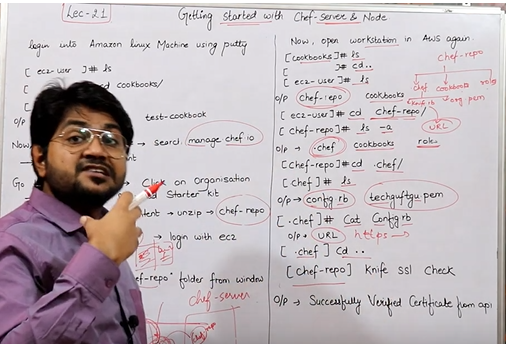 Lec-21
Getting started with Chef-server & Node
login into Amazon linux Machine using putty
[ ec2-user ]# ls
cd cookbooks/
O/P test-cookbook
Now, → search manage chef.io
Go → Click on Organisation
Starter kit
→ unzip → chef-repo
→ login with ec2
folder from window
chef-server
Now, open workstation in AWS again.
[cookbooks]# ls
[ ]# cd..
[ec2-user]# ls
O/P chef-repo cookbooks
[ec2-user]# cd chef-repo/
[chef-repo]# ls -a
O/P → .chef cookbooks roles
[chef-repo]# cd .chef/
[chef]# ls
O/P → config.rb techguftgu.pem
[.chef]# Cat Config.rb
O/P → URL https →
[.chef] Cd ..
[chef-repo] Knife ssl check
O/P → Successfully Verified Certificate from api
chef-repo
chef cookbooks roles
Knife.rb org.pem
URL